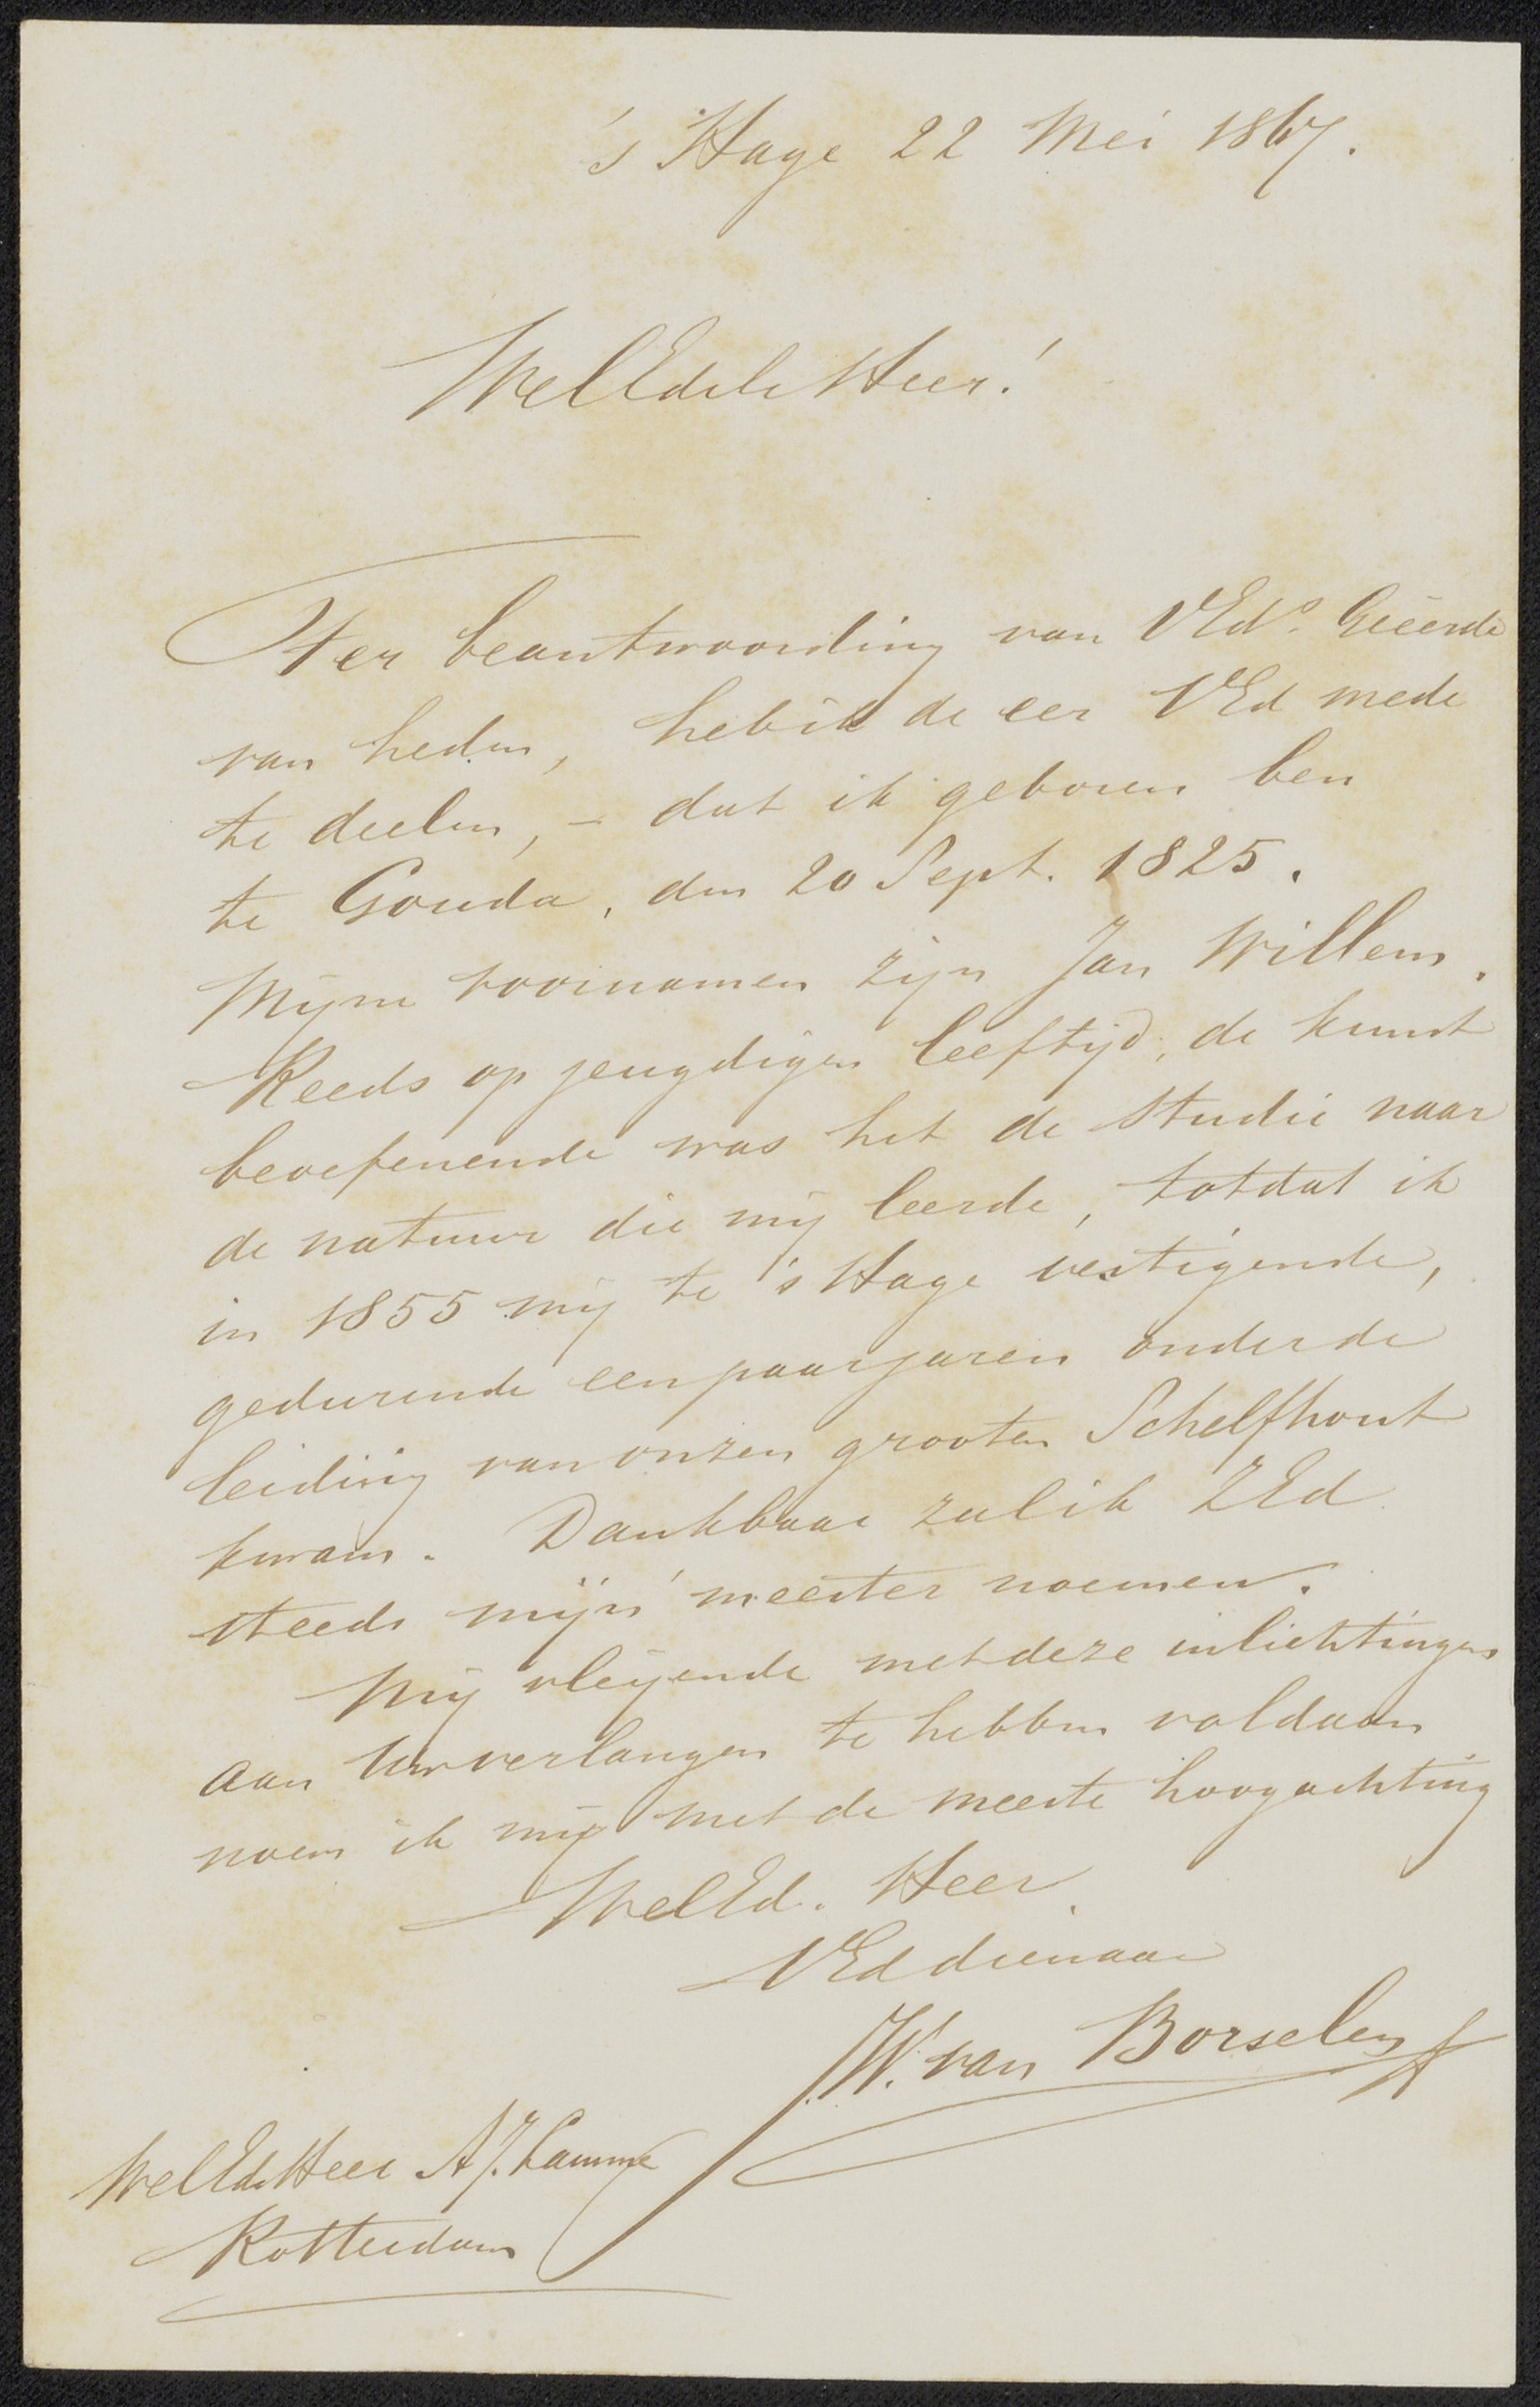 's Hage 22 Mei 1867.
WelEdele Heer!
Ter beantwoording van UEds. Geëerde
van heden, heb ik de eer UEd mede
te deelen, – dat ik geboren ben
te Gouda, den 20 Sept. 1825.
Mijne voornamen zijn Jan Willem.
Reeds op jeugdigen leeftijd, de kunst
beoefenende was het de studie naar
de natuur die mij leerde, totdat ik
in 1855 mij te 's Hage vestigende,
gedurende een paar jaren onder de
leiding van onzen grooten Schelfhout
kwam. Dankbaar zal ik ZEd
steeds mijn' meester noemen.
Mij vleijende met deze inlichtingen
aan Uw verlangen te hebben voldaan
noem ik mij met de meeste hoogachting
WelEd. Heer
UEd dienaar
JW. van Borselen
WelEde Heer A.J. Lamme
Rotterdam